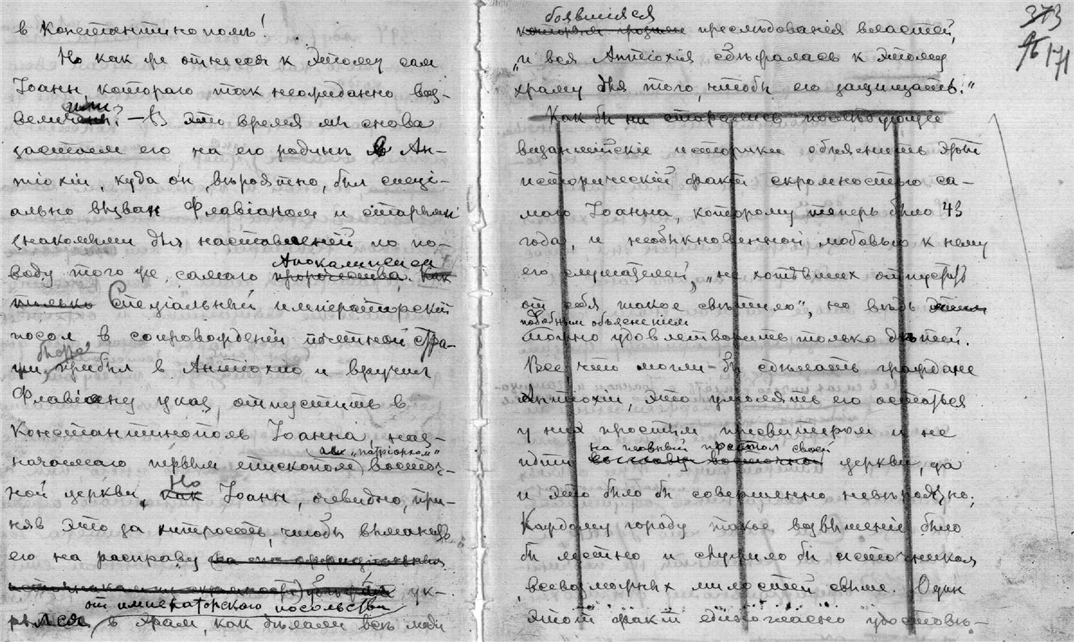 в Константинополь!
Но как же отнесся к этому сам
Іоанн, котораго так неожиданно воз-
величили? — В это время мы снова
застаем его на его родине в Ан-
тіохіи, куда он, вероятно, был спеці-
ально вызван Флавіаном и старыми
знакомыми для наставленій по по-
воду того же самаго Апокалипсиса!
Спеціальный императорскій
посол в сопровожденіи почетной стра-
жи прибыл в Антіохію и вручил
Флавіану указ, отпустить в
Константинополь Іоанна, наз-
наченнаго первым епископом (ав. „патріархом“) восточ-
ной церкви. Но Іоанн, очевидно, при-
няв это за хитрость чтобы выманить
его на расправу ук-
рылся от императорскаго посольства в храм, как делали все люди
боявшіяся преследованія властей,
„и вся Антіохія сбежалась к этому
храму для того, чтобы его защищать.“
Как бы ни старались последующіе
византійскіе историки объяснить этот
историческій факт скромностью са-
маго Іоанна, которому теперь было 43
года, и необыкновенной любовью к нему
его слушателей, „не хотевших отпустить
от себя такое светило“, но ведь
подобным объясненіем
можно удовлетворить только детей.
Все что могли-бы сделать граждане
Антіохіи, это умолять его остаться
у них простым пресвитером и не
идти на главный престол своей церкви, да
и это было бы совершенно невероятно.
Каждому городу такое возвышеніе было
бы лестно и служило бы источником
всевозможных милостей свыше. Один
этот факт единогласно удостове-
373
171